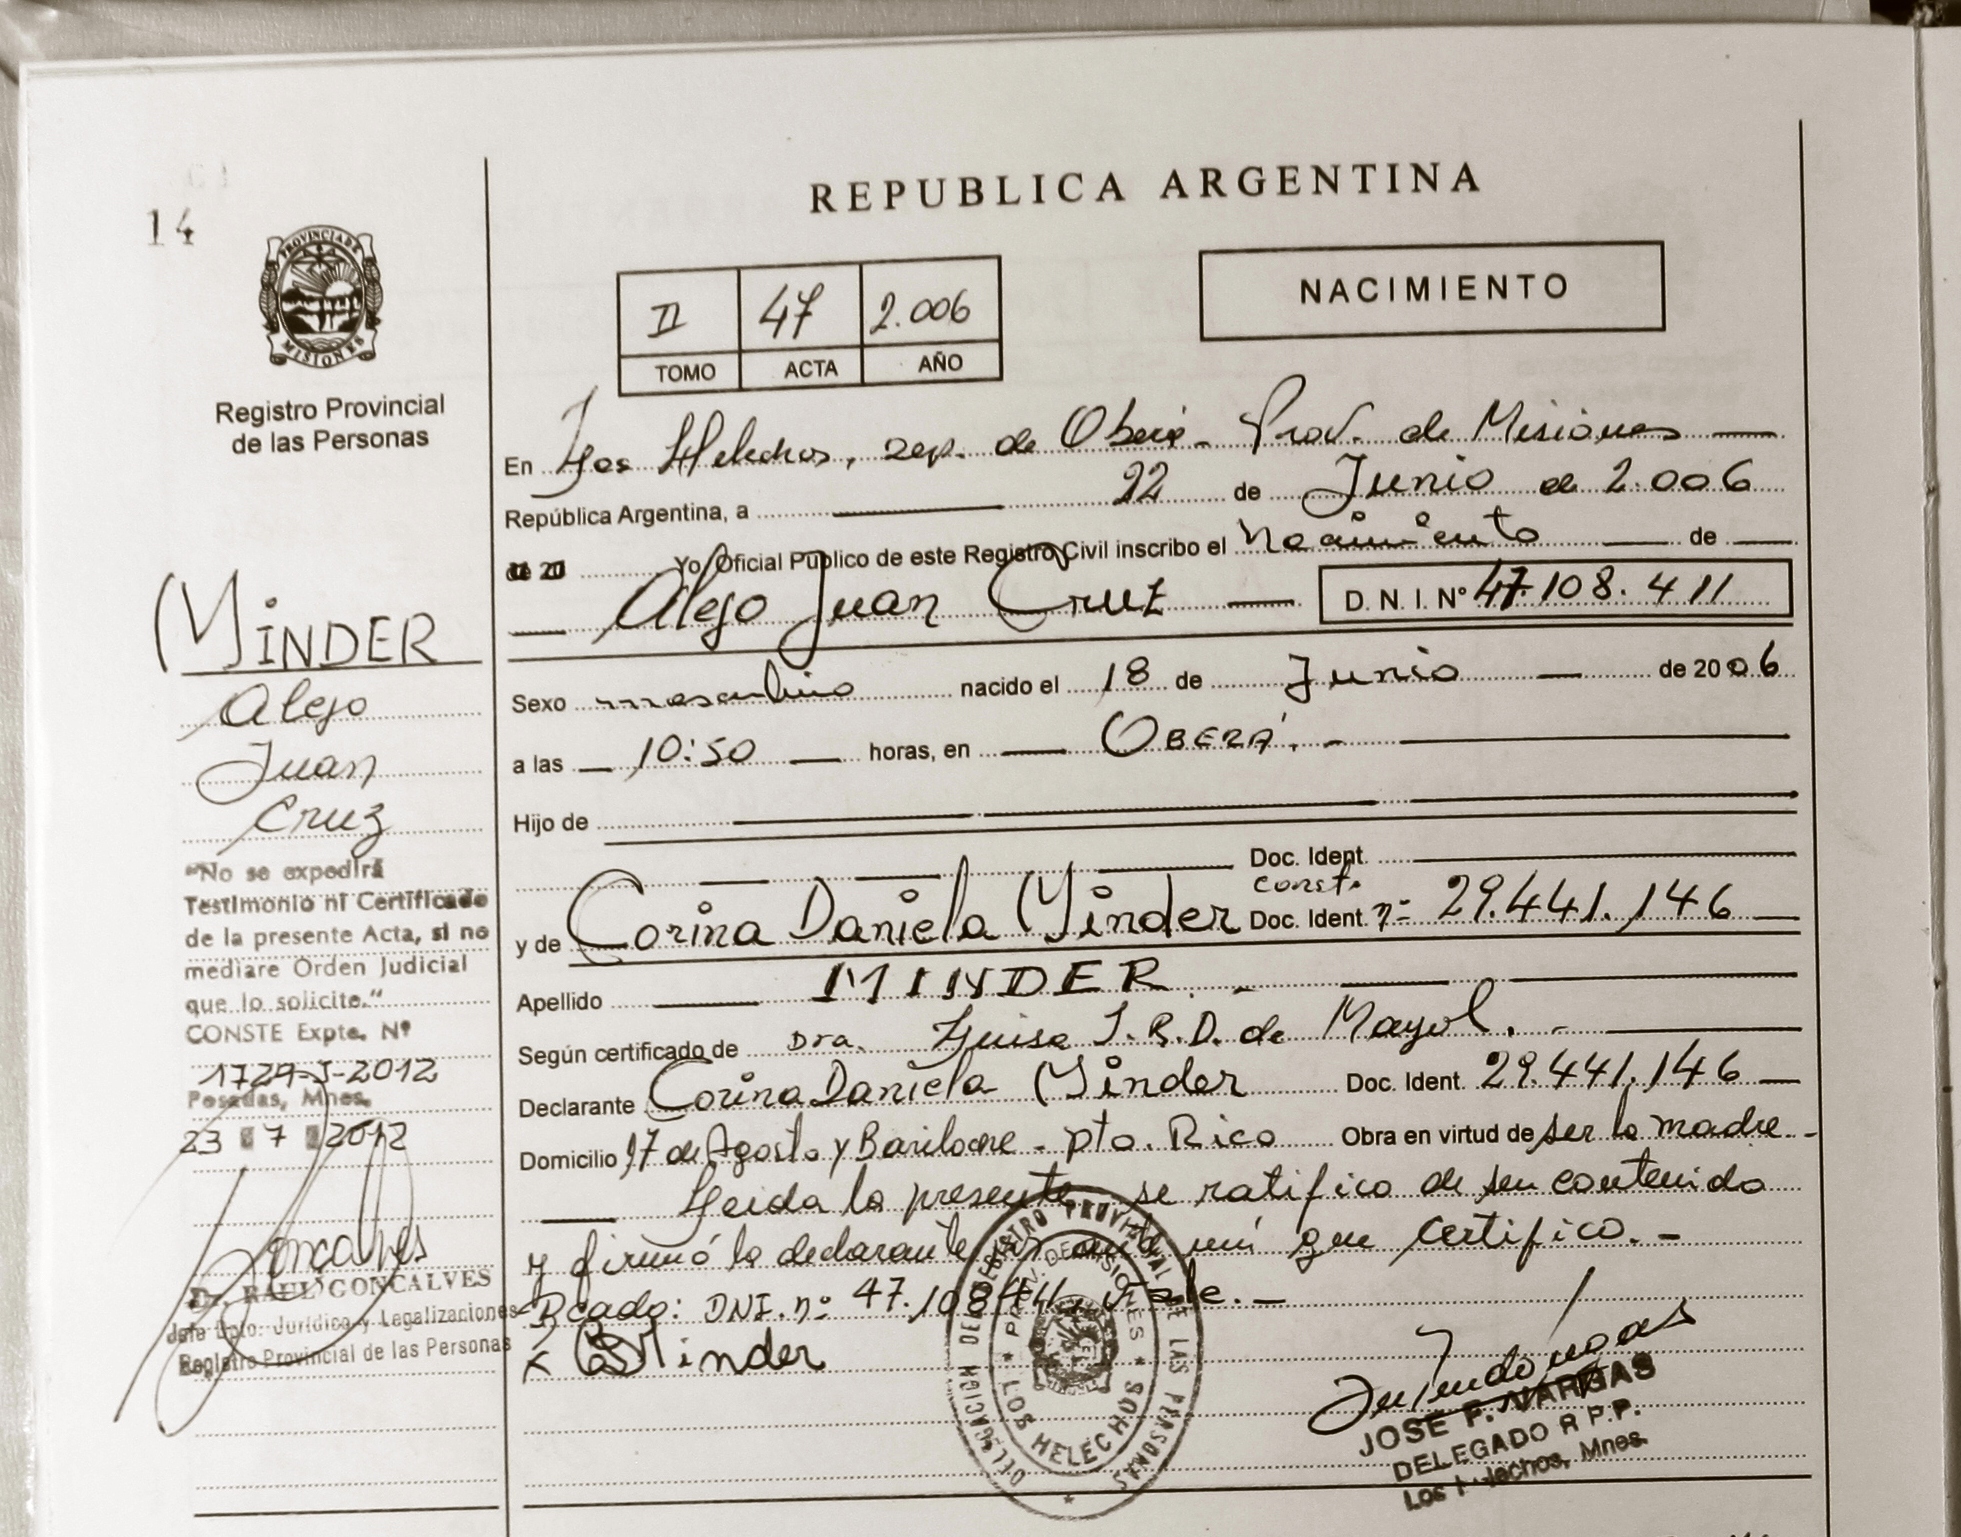 14
PROVINCIA DE
MISIONES
Registro Provincial
de las Personas
REPUBLICA ARGENTINA
II 47 2.006
TOMO ACTA AÑO
NACIMIENTO
En Los Helechos, Dep. de Oberá - Prov. de Misiones
República Argentina, a 22 de Junio de 2.006
de 20 Yo, Oficial Público de este Registro Civil inscribo el Nacimiento de
Alejo Juan Cruz D. N. I. Nº 47.108.411
Sexo masculino nacido el 18 de Junio de 2006
a las 10:50 horas, en OBERÁ.-
Hijo de
Doc. Ident.
const.
y de Corina Daniela Minder Doc. Ident. nº 29.441.146
Apellido MINDER.-
Según certificado de Dra. Luisa J.R.D. de Mayol.-
Declarante Corina Daniela Minder Doc. Ident. 29.441.146
Domicilio 17 de Agosto y Bariloche - pto. Rico Obra en virtud de ser la madre.-
Leida la presente se ratifico de su contenido
y firmó la declarante por ante mí que certifico.-
Rcado: DNI. nº 47.108.411, Vale.-
x Minder
MINDER
Alejo
Juan
Cruz
"No se expedirá
Testimonio ni Certificado
de la presente Acta, si no
mediare Orden Judicial
que lo solicite."
CONSTE Expte. Nº
1729-J-2012
Posadas, Mnes.
23 7 2012
Goncalves
Dr. RAUL GONCALVES
Jefe Dpto. Jurídica y Legalizaciones
Registro Provincial de las Personas
DELEGACION DE REGISTRO PROVINCIAL DE LAS PERSONAS
PROV. DE MISIONES
LOS HELECHOS
JOSE F. VARGAS
DELEGADO R.P.P.
Los Helechos, Mnes.